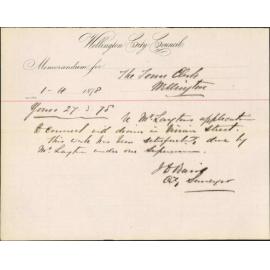 Wellington City Council
Memorandum for
The Town Clerk
Wellington
1-4 1878
Yours 27.3.78 re Mr Layton application
to connect with drain in Street.
This work has been satisfactorily done by
Mr Layton under our supervision.
J D Baird
City Surveyor